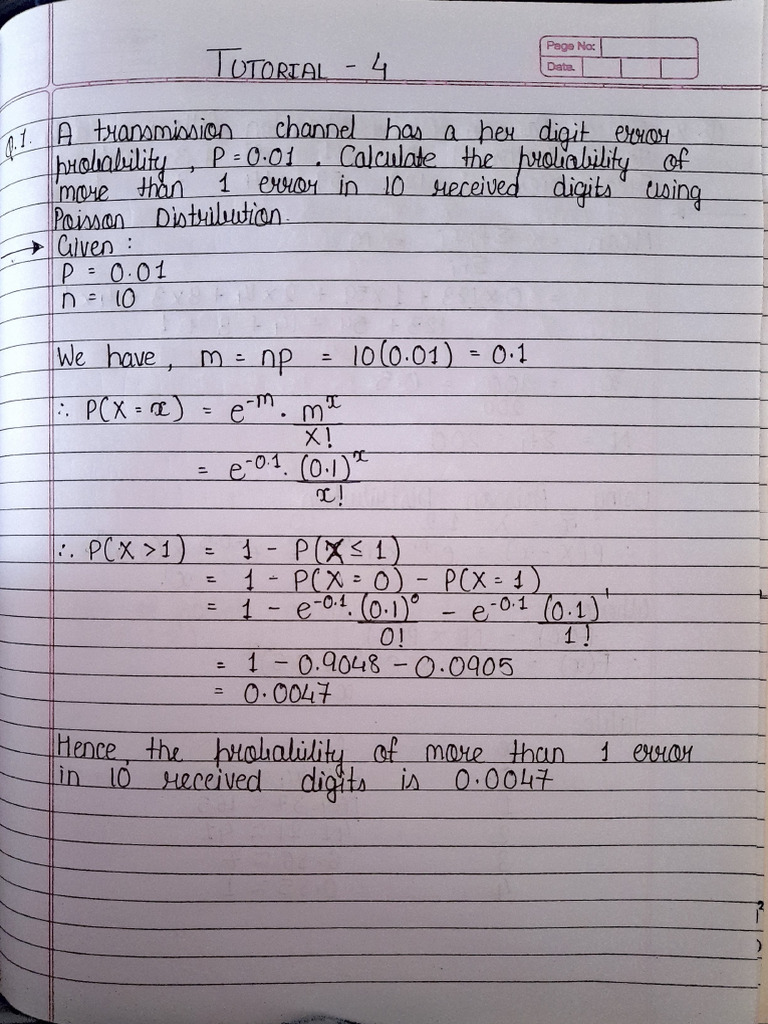 TUTORIAL - 4
Page No:
Date.
Q.1. A transmission channel has a per digit error
probability, P = 0.01. Calculate the probability of
more than 1 error in 10 received digits using
Poisson Distribution.
→ Given :
P = 0.01
n = 10
We have, m = np = 10(0.01) = 0.1
∴ P(X = x) = e^-m . m^x / x!
= e^-0.1 . (0.1)^x / x!
∴ P(X > 1) = 1 - P(X ≤ 1)
= 1 - P(X = 0) - P(X = 1)
= 1 - e^-0.1 . (0.1)^0 / 0! - e^-0.1 (0.1)^1 / 1!
= 1 - 0.9048 - 0.0905
= 0.0047
Hence, the probability of more than 1 error
in 10 received digits is 0.0047